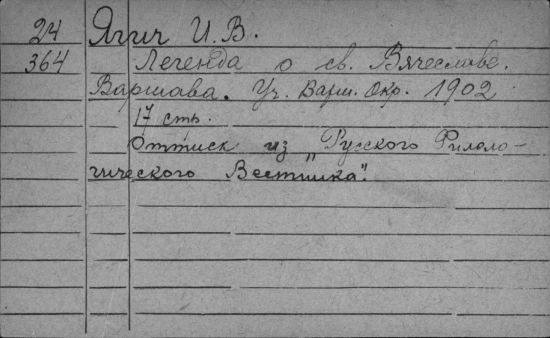 24 Ягич И. В.
364 Легенда о св. Вячеславе.
Варшава. Уч. Варш. Окр. 1902
17 стъ.
Оттиск из „Русского Филоло-
гического Вестника".